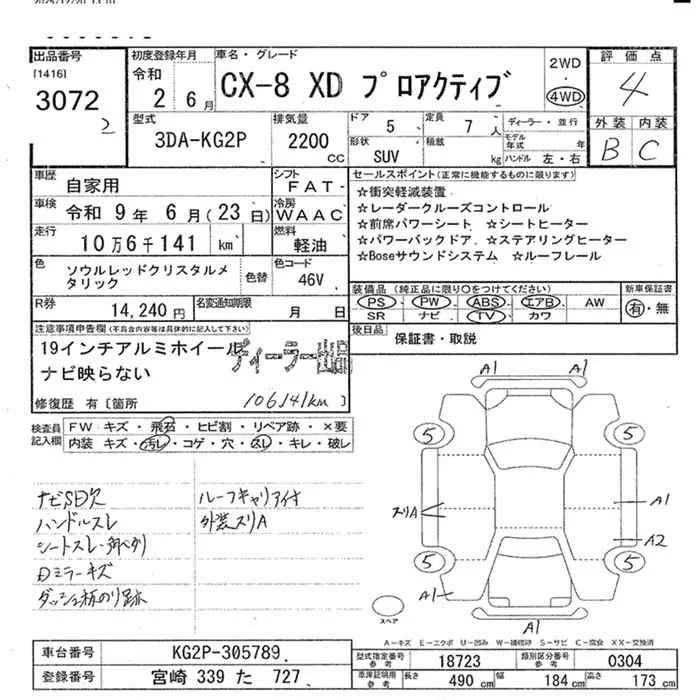 出品番号
[1416]
3072
2
初度登録年月
令和
2 6月
車名・グレード
CX-8 XD プロアクティブ
2WD
・
4WD
評価点
4
型式
3DA-KG2P
排気量
2200
CC
ドア
5
定員
7人
ディーラー・並行
モデル年式 年
ハンドル 左・右
形状
SUV
積載
kg
外装 内装
B C
車歴
自家用
シフト
FAT
車検
令和 9年 6月(23日)
冷房
WAAC
走行
10万6千141 km
燃料
軽油
色
ソウルレッドクリスタルメタリック
色替
色コード
46V
R券
14,240円
名変通知期限
月 日
セールスポイント(正常に機能するものに限ります)
☆衝突軽減装置
☆レーダークルーズコントロール
☆前席パワーシート ☆シートヒーター
☆パワーバックドア ☆ステアリングヒーター
☆Boseサウンドシステム ☆ルーフレール
装備品(純正品に限り○をつけてください)
PS・PW・ABS・エアB・AW
SR ナビ・TV・カワ
新車保証書
有・無
後日品
保証書・取説
注意事項申告欄(不具合内容等は具体的に記入して下さい)
19インチアルミホイール
ナビ映らない
ディーラー
修復歴 有〔箇所
106141km
〕
検査員記入欄
FW キズ・飛石・ヒビ割・リペア跡・×要
内装 キズ・汚レ・コゲ・穴・スレ・キレ・破レ
ナビSD欠
ルーフキャリア付
ハンドルスレ
外装スリA
Dミラーキズ
ダッシュ板のり跡
A1 A1
5 5
スリA
A1
A2
5 5
A1
A1
スペア
A-キズ E-エクボ U-凹み W-補修跡 S-サビ C-腐食 XX-交換済
車台番号
KG2P-305789
登録番号
宮崎 339 た 727
型式指定番号
参考
18723
類別区分番号
参考
0304
車庫証明用
参考
長さ 490 cm 幅 184 cm 高さ 173 cm